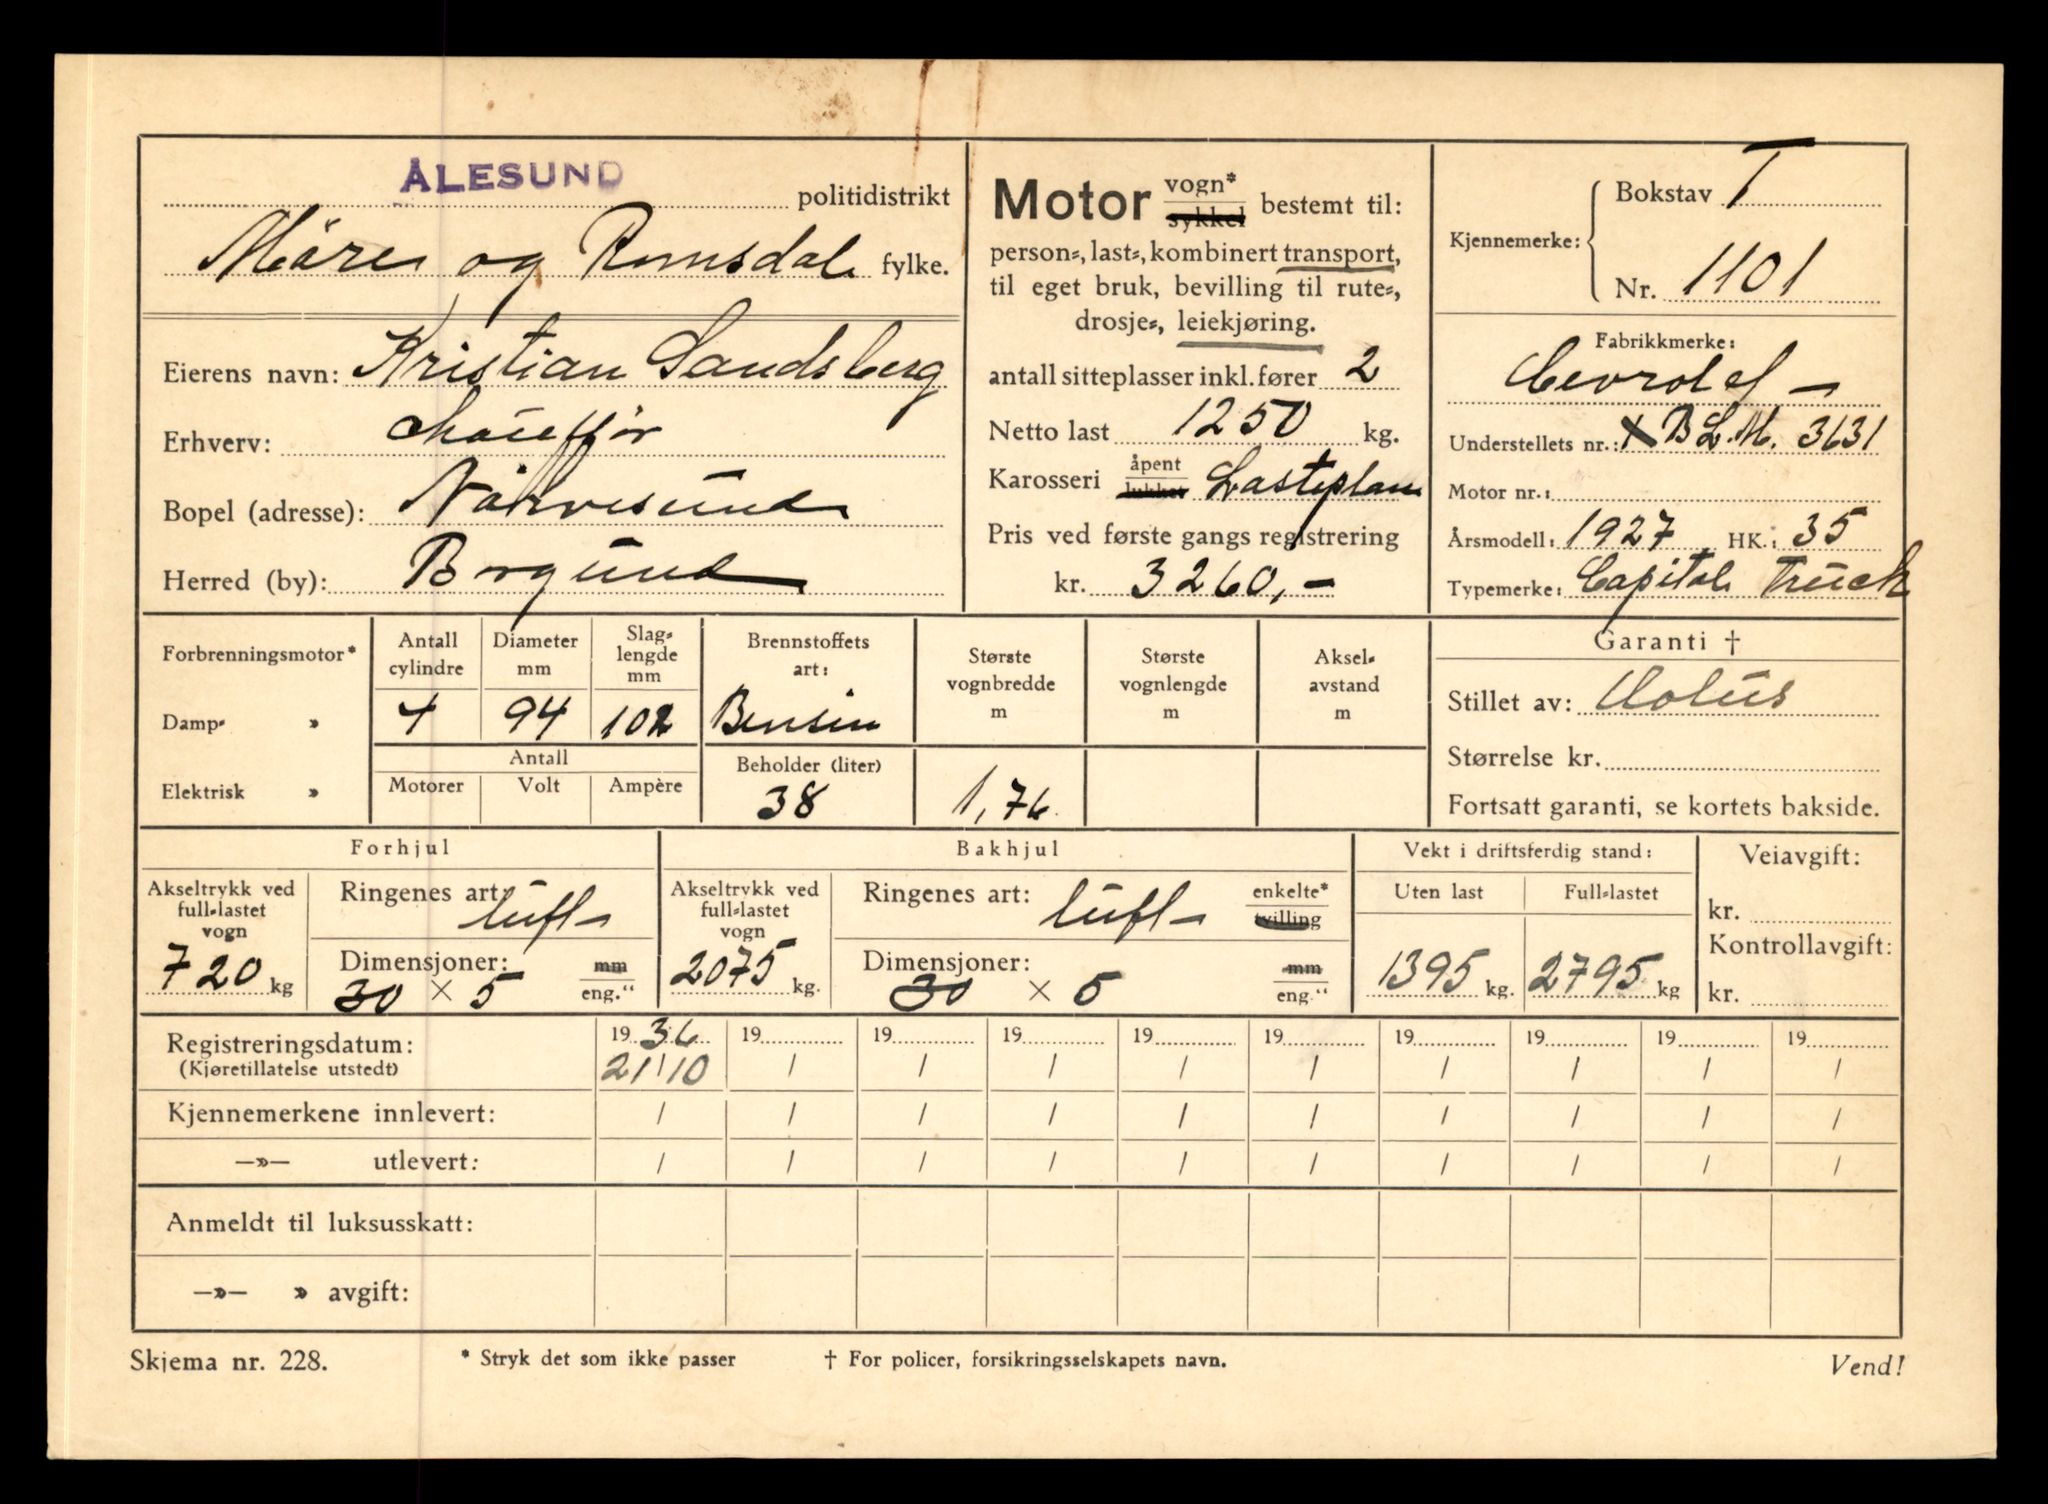 ÅLESUND politidistrikt
Møre og Romsdal fylke.
Eierens navn: Kristian Sandsberg
Erhverv: chauffør
Bopel (adresse): Nørvesund
Herred (by): Borgund
Motor vogn* sykkel bestemt til:
person-, last-, kombinert transport,
til eget bruk, bevilling til rute-,
drosje-, leiekjøring.
antall sitteplasser inkl. fører 2
Netto last 1250 kg.
Karosseri åpent lukket Lasteplan
Pris ved første gangs registrering
kr. 3260,-
Kjennemerke: Bokstav T
Nr. 1101
Fabrikkmerke:
Cevrolet
Understellets nr.: X B L.M. 3631
Motor nr.:
Årsmodell: 1927 HK.: 35
Typemerke: Capitol Truck
Forbrenningsmotor*
Damp- »
Elektrisk »
Antall cylindre 4
Diameter mm 94
Slag-lengde mm 102
Antall
Motorer Volt Ampère
Brennstoffets art: Bensin
Beholder (liter) 38
Største vognbredde m 1,76
Største vognlengde m
Aksel-avstand m
Garanti †
Stillet av: Holus
Størrelse kr.
Fortsatt garanti, se kortets bakside.
Forhjul
Akseltrykk ved full-lastet vogn 720 kg
Ringenes art: luft
Dimensjoner: 30 × 5 mm eng."
Bakhjul
Akseltrykk ved full-lastet vogn 2075 kg.
Ringenes art: luft enkelte* tvilling
Dimensjoner: 30 × 5 mm eng."
Vekt i driftsferdig stand:
Uten last Full-lastet
1395 kg. 2795 kg
Veiavgift:
kr.
Kontrollavgift:
kr.
Registreringsdatum: 19 36 19 19 19 19 19 19 19 19 19
(Kjøretillatelse utstedt) 21/10 / / / / / / / / /
Kjennemerkene innlevert: / / / / / / / / / /
—»— utlevert: / / / / / / / / / /
Anmeldt til luksusskatt:
—»— » avgift:
Skjema nr. 228. * Stryk det som ikke passer † For policer, forsikringsselskapets navn. Vend!